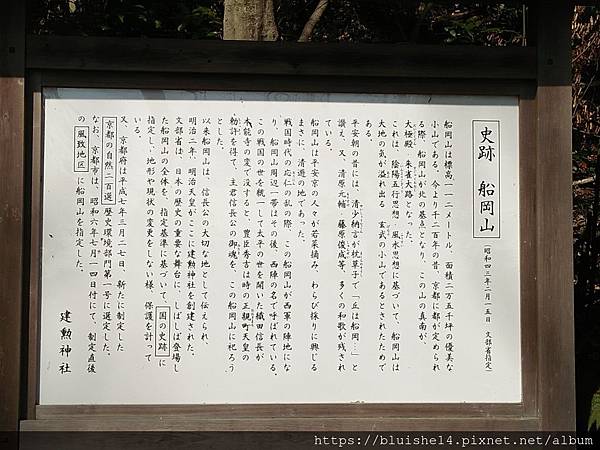 史跡 船岡山
(昭和四三年二月一五日 文部省指定)
船岡山は標高一一二メートル、面積二万五千坪の優美な
小山である。今より千二百年の昔、京都に都が定められ
る際、船岡山が北の基点となり、この山の真南が、
大極殿、朱雀大路となった。
これは、陰陽五行思想、風水思想に基づいて、船岡山は
大地の気が溢れ出る、玄武の小山であるとされたためで
ある。
平安朝の昔には、清少納言が枕草子で「丘は船岡…」と
讃え、又、清原元輔、藤原俊成等、多くの和歌が残され
ている。
船岡山は平安京の人々が若菜摘み、わらび採りに興じる
まさに、清遊の地であった。
戦国時代の応仁の乱の際、この船岡山が西軍の陣地にな
り、船岡山周辺一帯はその後、西陣の名で呼ばれている。
この戦国の世を統一して太平の世を開いた織田信長が
本能寺の変で没すると、豊臣秀吉は時の正親町天皇の
勅許を得て、主君信長公の御魂を、この船岡山に祀ろう
とした。
以来船岡山は、信長公の大切な地として伝えられ、
明治二年、明治天皇がここに建勲神社を創建された。
文部省は、日本の歴史の重要な舞台に、しばしば登場し
た船岡山の全体を、指定基準に基づいて、国の史跡に
指定し、地形や現状の変更をしない様、保護を計って
いる。
又、京都府は平成七年三月二七日、新たに制定した
京都の自然二百選 歴史環境部門第一号に選定した。
なお、京都市は、昭和六年七月一四日付にて、制定直後
の 風致地区 に船岡山を指定した。
建勲神社
https://bluishe14.pixnet.net/album